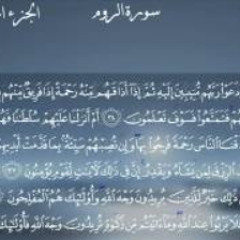 سورة الروم الجزء
دعوا ربهم منيبين إليه ثم إذا أذاقهم منه رحمة إذا فريق منهم
فتمتعوا فسوف تعلمون ٣٤ أم أنزلنا عليهم سلطانا فهو
الناس رحمة فرحوا بها وإن تصبهم سيئة بما قدمت أيديهم
لمن يشاء ويقدر إن في ذلك لآيت لقوم يؤمنون ٣٧
ذلك خير للذين يريدون وجه الله وأولئك هم المفلحون
يربوا عند الله وما ءاتيتم من زكوة تريدون وجه الله فأولئك